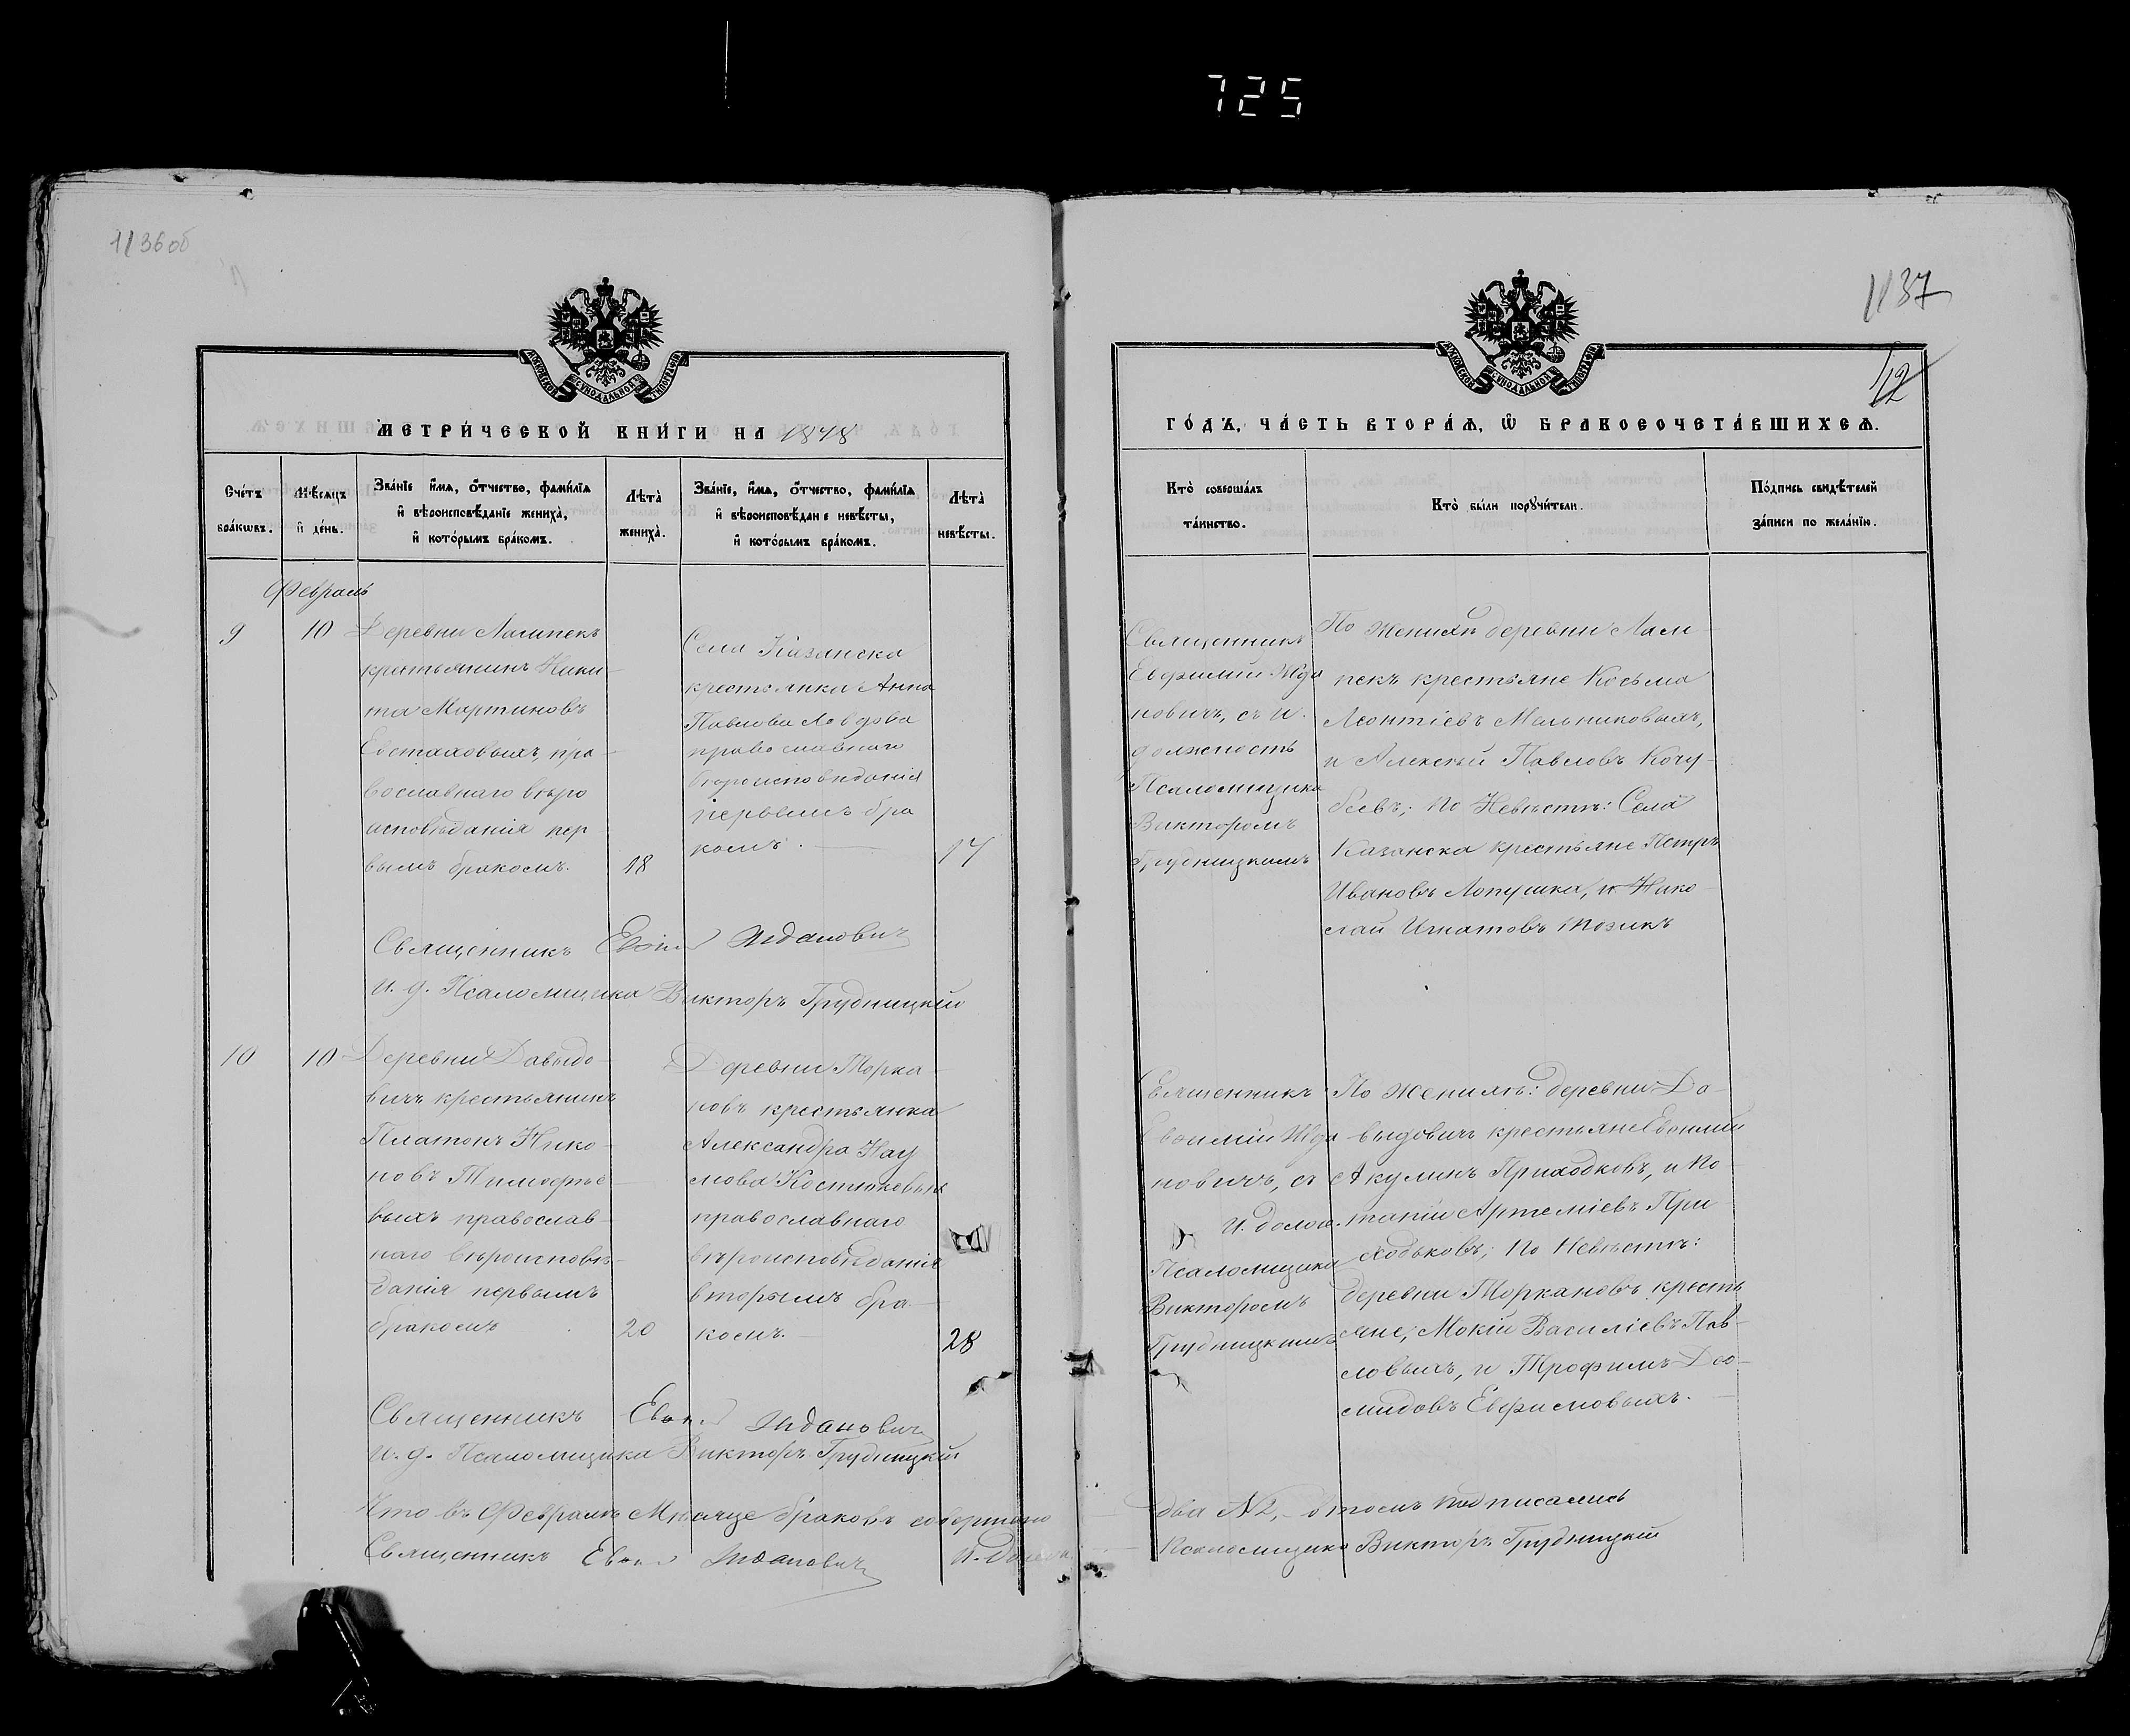 725
1136об
1137
12
МОСКОВСКОЙ СѴНОДАЛЬНОЙ ТИПОГРАФІИ
МЕТРИ́ЧЕСКОЙ КНИ́ГИ НА 1878
Сче́тъ бра́кѡвъ.
Мѣ́сяцъ и҆ де́нь.
Зва́нїе и҆́мѧ, ѻ҆́тчество, фами́лїѧ и҆ вѣроисповѣ́данїе жениха̀, и҆ кото́рымъ бра́комъ.
Лѣта̀ жениха̀.
Зва́нїе, и҆́мѧ, ѻ҆́тчество, фами́лїѧ и҆ вѣроисповѣ́данїе невѣ́сты, и҆ кото́рымъ бра́комъ.
Лѣта̀ невѣ́сты.
Февраль
9
10
Деревни Лашпекъ
крестьянинъ Ники-
та Мартиновъ
Евстаховыхъ, пра-
вославнаго вѣро
исповѣданія пер
вымъ бракомъ.
18
Села Казанска
крестьянка Анна
Павлова
православнаго
вѣроисповѣданія
первымъ бра
комъ.
17
Священникъ Евѳим Ждановичъ
И. д. Псаломщика Викторъ Грудницкій
10
10
Деревни Давыдо-
вичъ крестьянинъ
Платонъ Нико-
новъ Тимофѣе-
выхъ православ-
наго вѣроисповѣ-
данія первымъ
бракомъ
20
Деревни Торка-
новъ крестьянка
Александра Нау
мова Костюковыхъ
православнаго
вѣроисповѣданія
вторымъ бра-
комъ.
28
Священникъ Евѳим Ждановичъ
И. д. Псаломщика Викторъ Грудницкій
Что въ Февралѣ Мѣсяце браковъ совершено
Священникъ Евѳим Ждановичъ И. Долж
МОСКОВСКОЙ СѴНОДАЛЬНОЙ ТИПОГРАФІИ
ГО́ДЪ, ЧА́СТЬ ВТОРА́Ѧ, Ѡ҆ БРАКОСОЧЕТА́ВШИХСѦ.
Кто̀ соверша́лъ та́инство.
Кто̀ бы́ли порꙋчи́тели.
По́дпись свидѣ́телей за́писи по жела́нїю.
Священникъ
Евфимій Жда
новичъ, съ И.
должность
Псаломщика
Викторомъ
Грудницкимъ
По Женихѣ деревни Лаш-
пекъ крестьяне Косьма
Леонтіевъ Мельниковыхъ,
и Алексѣй Павловъ Кочу-
беевъ; По Невѣстѣ: Села
Казанска крестьяне Петръ
Ивановъ Лопушка, и Нико-
лай Игнатовъ
Священникъ
Евѳимій Жда
новичъ, съ
И. долж.
Псаломщика
Викторомъ
Грудницкимъ
По Женихѣ: деревни Да-
выдовичъ крестьяне Евѳимій
Акулинъ Приходковъ, и По-
тапій Артеміевъ При
ходьковъ; По Невѣстѣ:
деревни Торкановъ кресть
яне, Мокій Василіевъ Пав-
ловыхъ, и Трофимъ Део-
мидовъ Евфимовыхъ.
два №2, - о томъ подписались
Псаломщика Викторъ Грудницкій